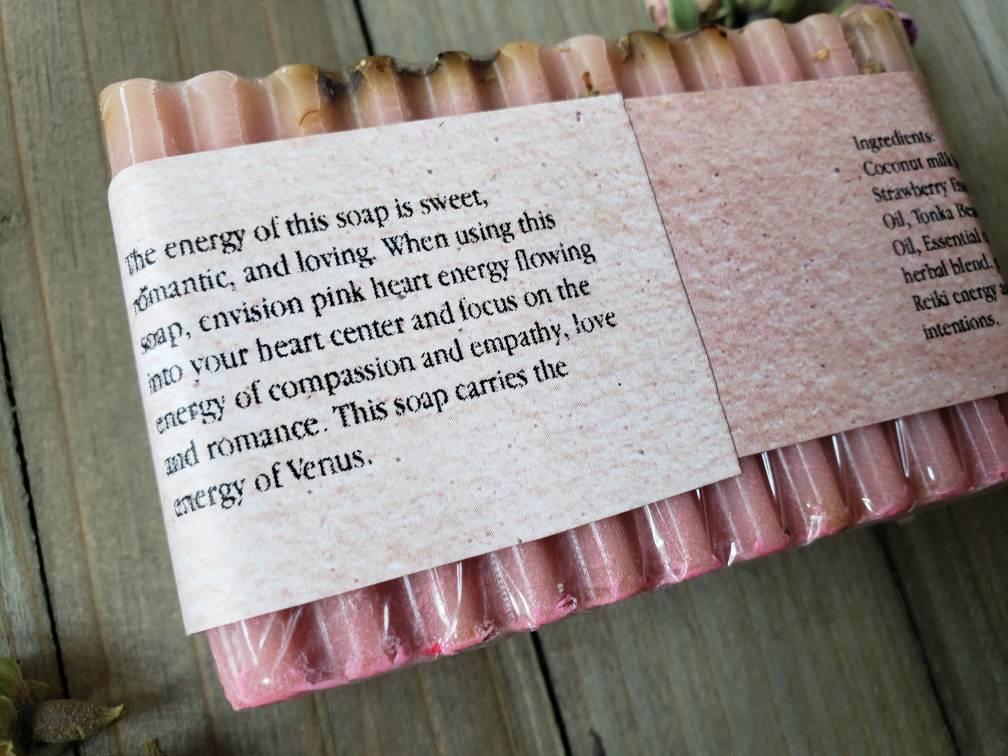 The energy of this soap is sweet,
romantic, and loving. When using this
soap, envision pink heart energy flowing
into your heart center and focus on the
energy of compassion and empathy, love
and romance. This soap carries the
energy of Venus.
Ingredients:
Coconut milk
Strawberry
Oil, Tonka
Oil, Essential
herbal blend.
Reiki energy
intentions.